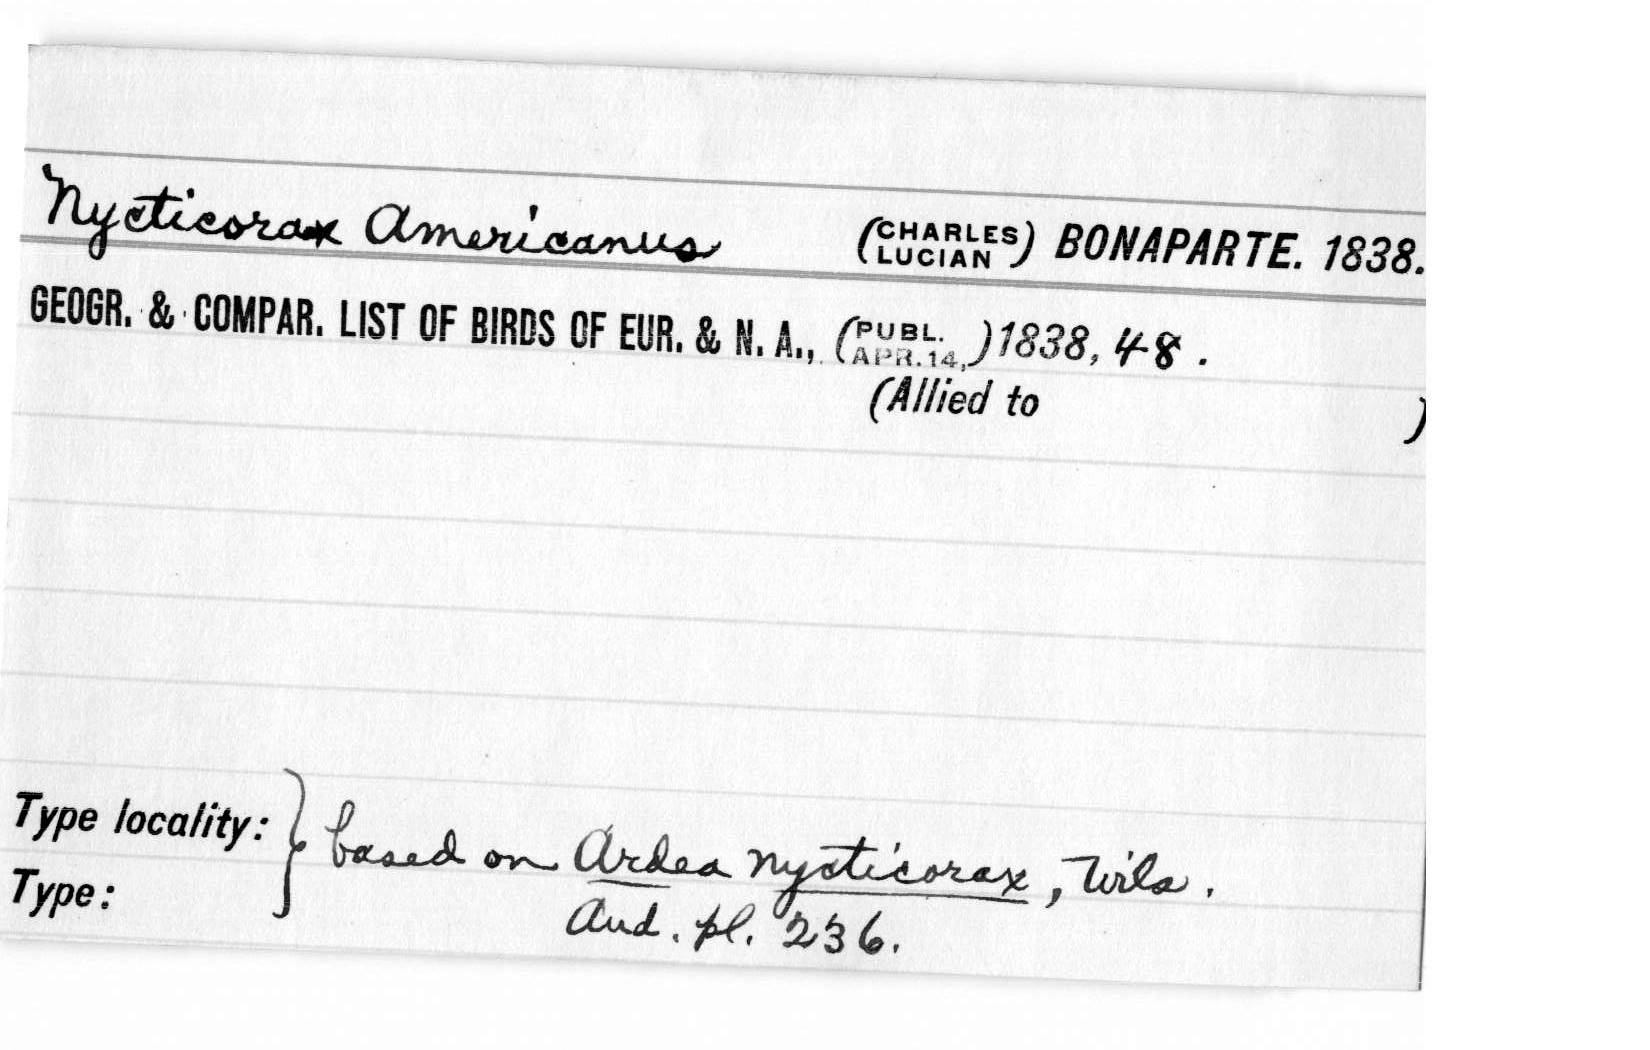 Nycticorax Americanus (CHARLES LUCIAN) BONAPARTE. 1838.
GEOGR. & COMPAR. LIST OF BIRDS OF EUR. & N. A., (PUBL. APR. 14,) 1838, 48.
(Allied to )
Type locality: } based on Ardea nycticorax, Wils.
Type: Aud. pl. 236.